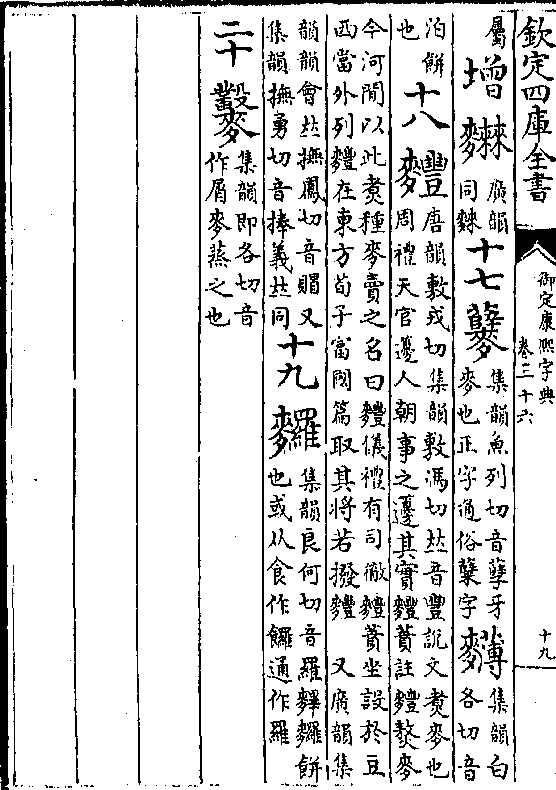 欽定四庫全書
御定康熙字典
卷三十六
十九
屬 增 䴷 廣韻同䴬 十七 𪍨 集韻魚列切音孽牙麥也正字通俗櫱字 𪍡 集韻白各切音
泊餅也 十八 麷 唐韻敷戎切集韻敷馮切𠀤音豐說文煑麥也周禮天官籩人朝事之籩其實麷蕡註麷熬麥
今河閒以此煑種麥賣之名曰麷儀禮有司徹麷蕡坐設於豆西當外列麷在東方荀子富國篇取其將若撥麷 又廣韻集
韻韻會𠀤撫鳳切音賵又集韻撫勇切音捧義𠀤同 十九 𪎆 集韻良何切音羅䴹𪎆餅也或从食作饠通作羅
二十 𪎇 集韻即各切音作屑麥蒸之也